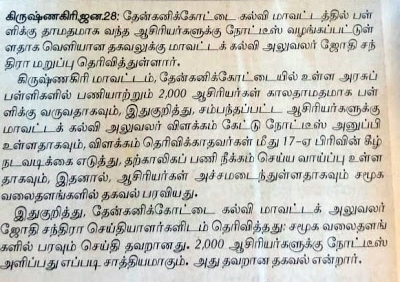 கிருஷ்ணகிரி,ஜன.28: தேன்கனிக்கோட்டை கல்வி மாவட்டத்தில் பள்
ளிக்கு தாமதமாக வந்த ஆசிரியர்களுக்கு நோட்டீஸ் வழங்கப்பட்டுள்
ளதாக வெளியான தகவலுக்கு மாவட்டக் கல்வி அலுவலர் ஜோதி சந்
திரா மறுப்பு தெரிவித்துள்ளார்.
கிருஷ்ணகிரி மாவட்டம், தேன்கனிக்கோட்டையில் உள்ள அரசுப்
பள்ளிகளில் பணியாற்றும் 2,000 ஆசிரியர்கள் காலதாமதமாக பள்
ளிக்கு வருவதாகவும், இதுகுறித்து, சம்பந்தப்பட்ட ஆசிரியர்களுக்கு
மாவட்டக் கல்வி அலுவலர் விளக்கம் கேட்டு நோட்டீஸ் அனுப்பி
உள்ளதாகவும், விளக்கம் தெரிவிக்காதவர்கள் மீது 17-ஏ பிரிவின் கீழ்
நடவடிக்கை எடுத்து, தற்காலிகப் பணி நீக்கம் செய்ய வாய்ப்பு உள்ள
தாகவும், இதனால், ஆசிரியர்கள் அச்சமடைந்துள்ளதாகவும் சமூக
வலைதளங்களில் தகவல் பரவியது.
இதுகுறித்து, தேன்கனிக்கோட்டை கல்வி மாவட்டக் அலுவலர்
ஜோதி சந்திரா செய்தியாளர்களிடம் தெரிவித்தது: சமூக வலைதளங்
களில் பரவும் செய்தி தவறானது. 2,000 ஆசிரியர்களுக்கு நோட்டீஸ்
அளிப்பது எப்படி சாத்தியமாகும். அது தவறான தகவல் என்றார்.